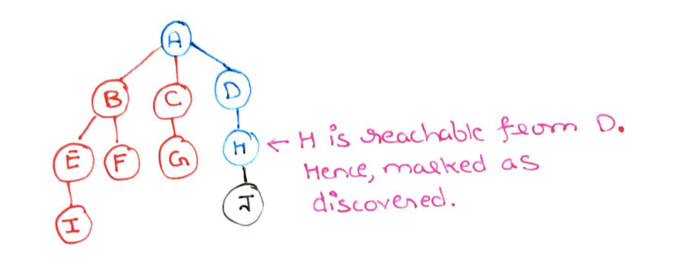 A
B C D
E F G H ← H is reachable from D.
Hence, marked as
discovered.
I J